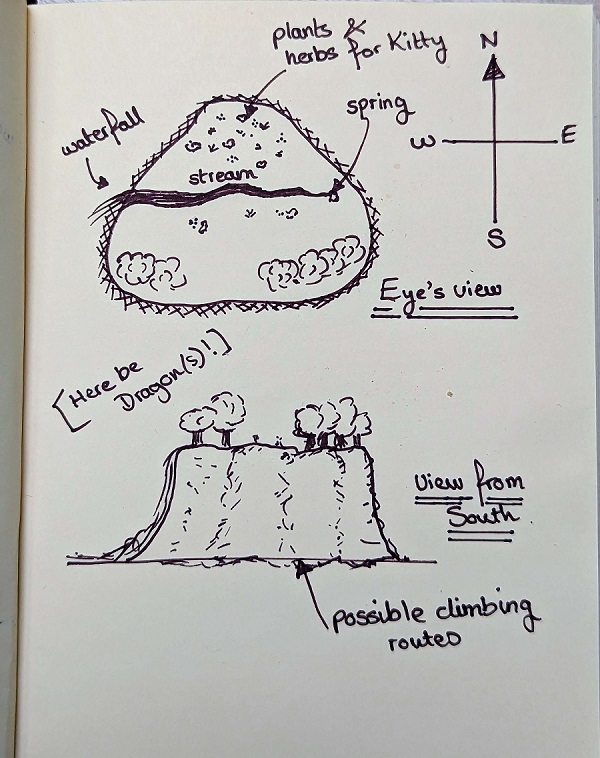 plants &
herbs for Kitty
N
waterfall
spring
W
E
stream
S
Eye's view
[Here be
Dragon(s)!]
View from
South
possible climbing
routes